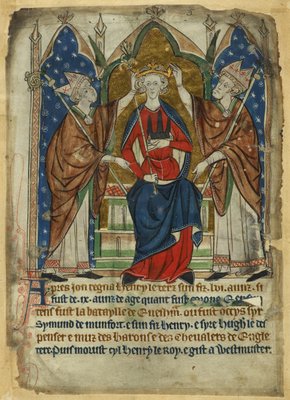 Apres Jon regna Henry le terz sun fiz. lvi. aunz. si
fust de .ix. aunz de age quant fust corone
tens fust la bataylle de Evesham. ou fust occys syr
Symund de munfort. e sun fiz Henry. e syre Hugh le de
penser e muz des Barons e des Chevalers de Engle
tere. Puis morust cyl Henry le Roy. e gist a Westmuster.